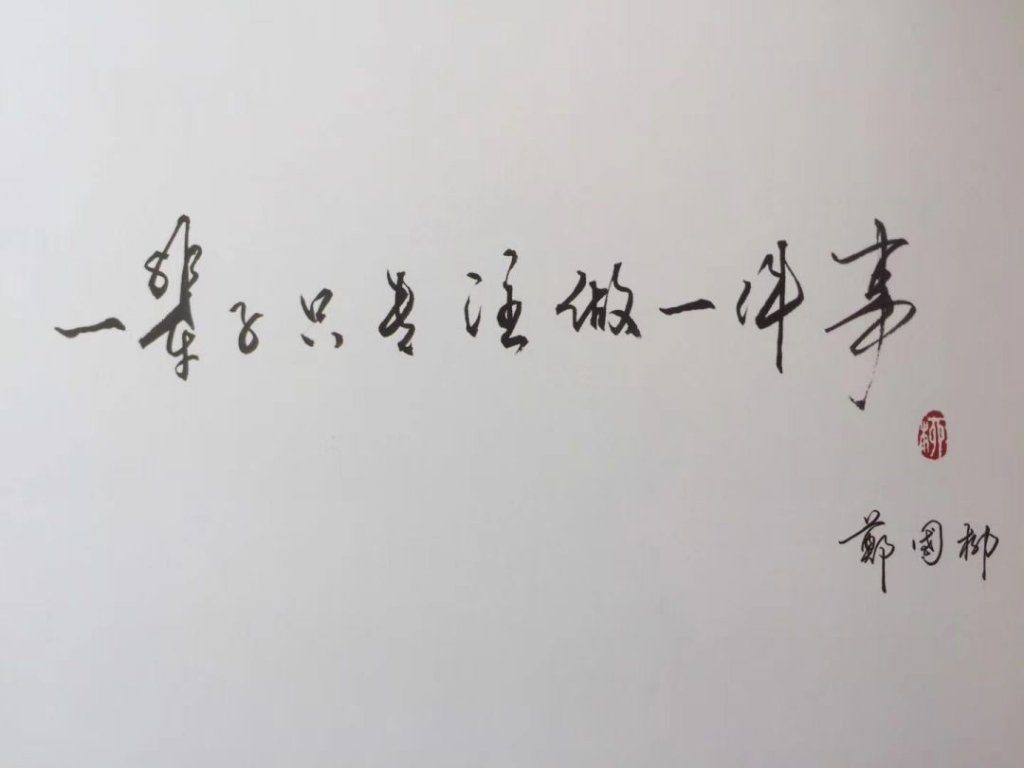 一辈子只专注做一件事
柳
鄭國柳